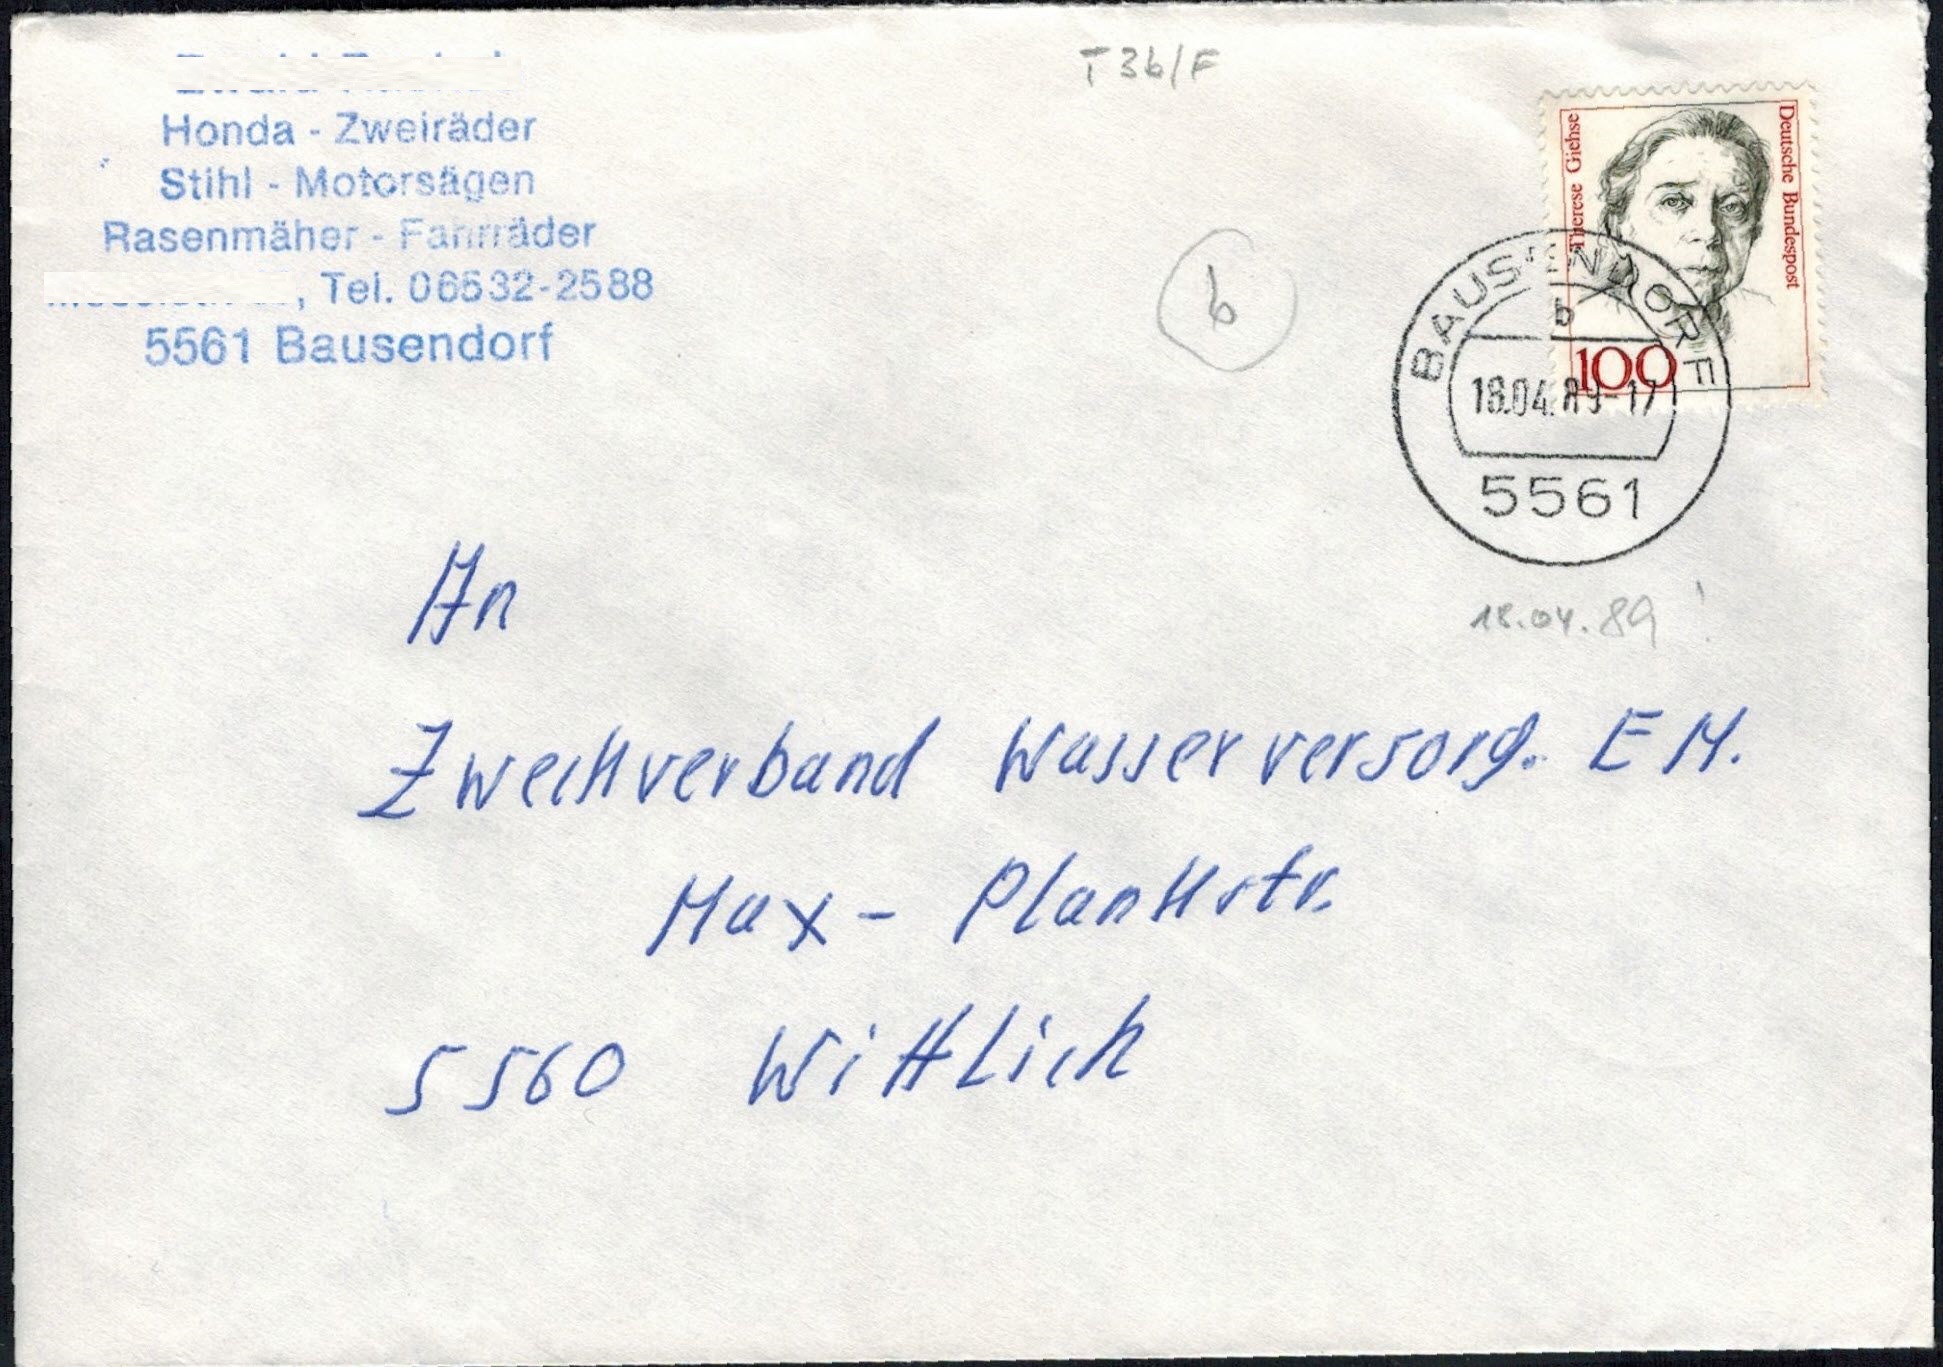 Honda - Zweiräder
Stihl - Motorsägen
Rasenmäher - Fahrräder
, Tel. 06532-2588
5561 Bausendorf
T 3b/F
b
Therese Giehse
Deutsche Bundespost
100
BAUSENDORF
b
18.04.89-17
5561
18.04.89!
An
Zweckverband Wasserversorg. E M.
Max - Plankstr.
5560 Wittlich